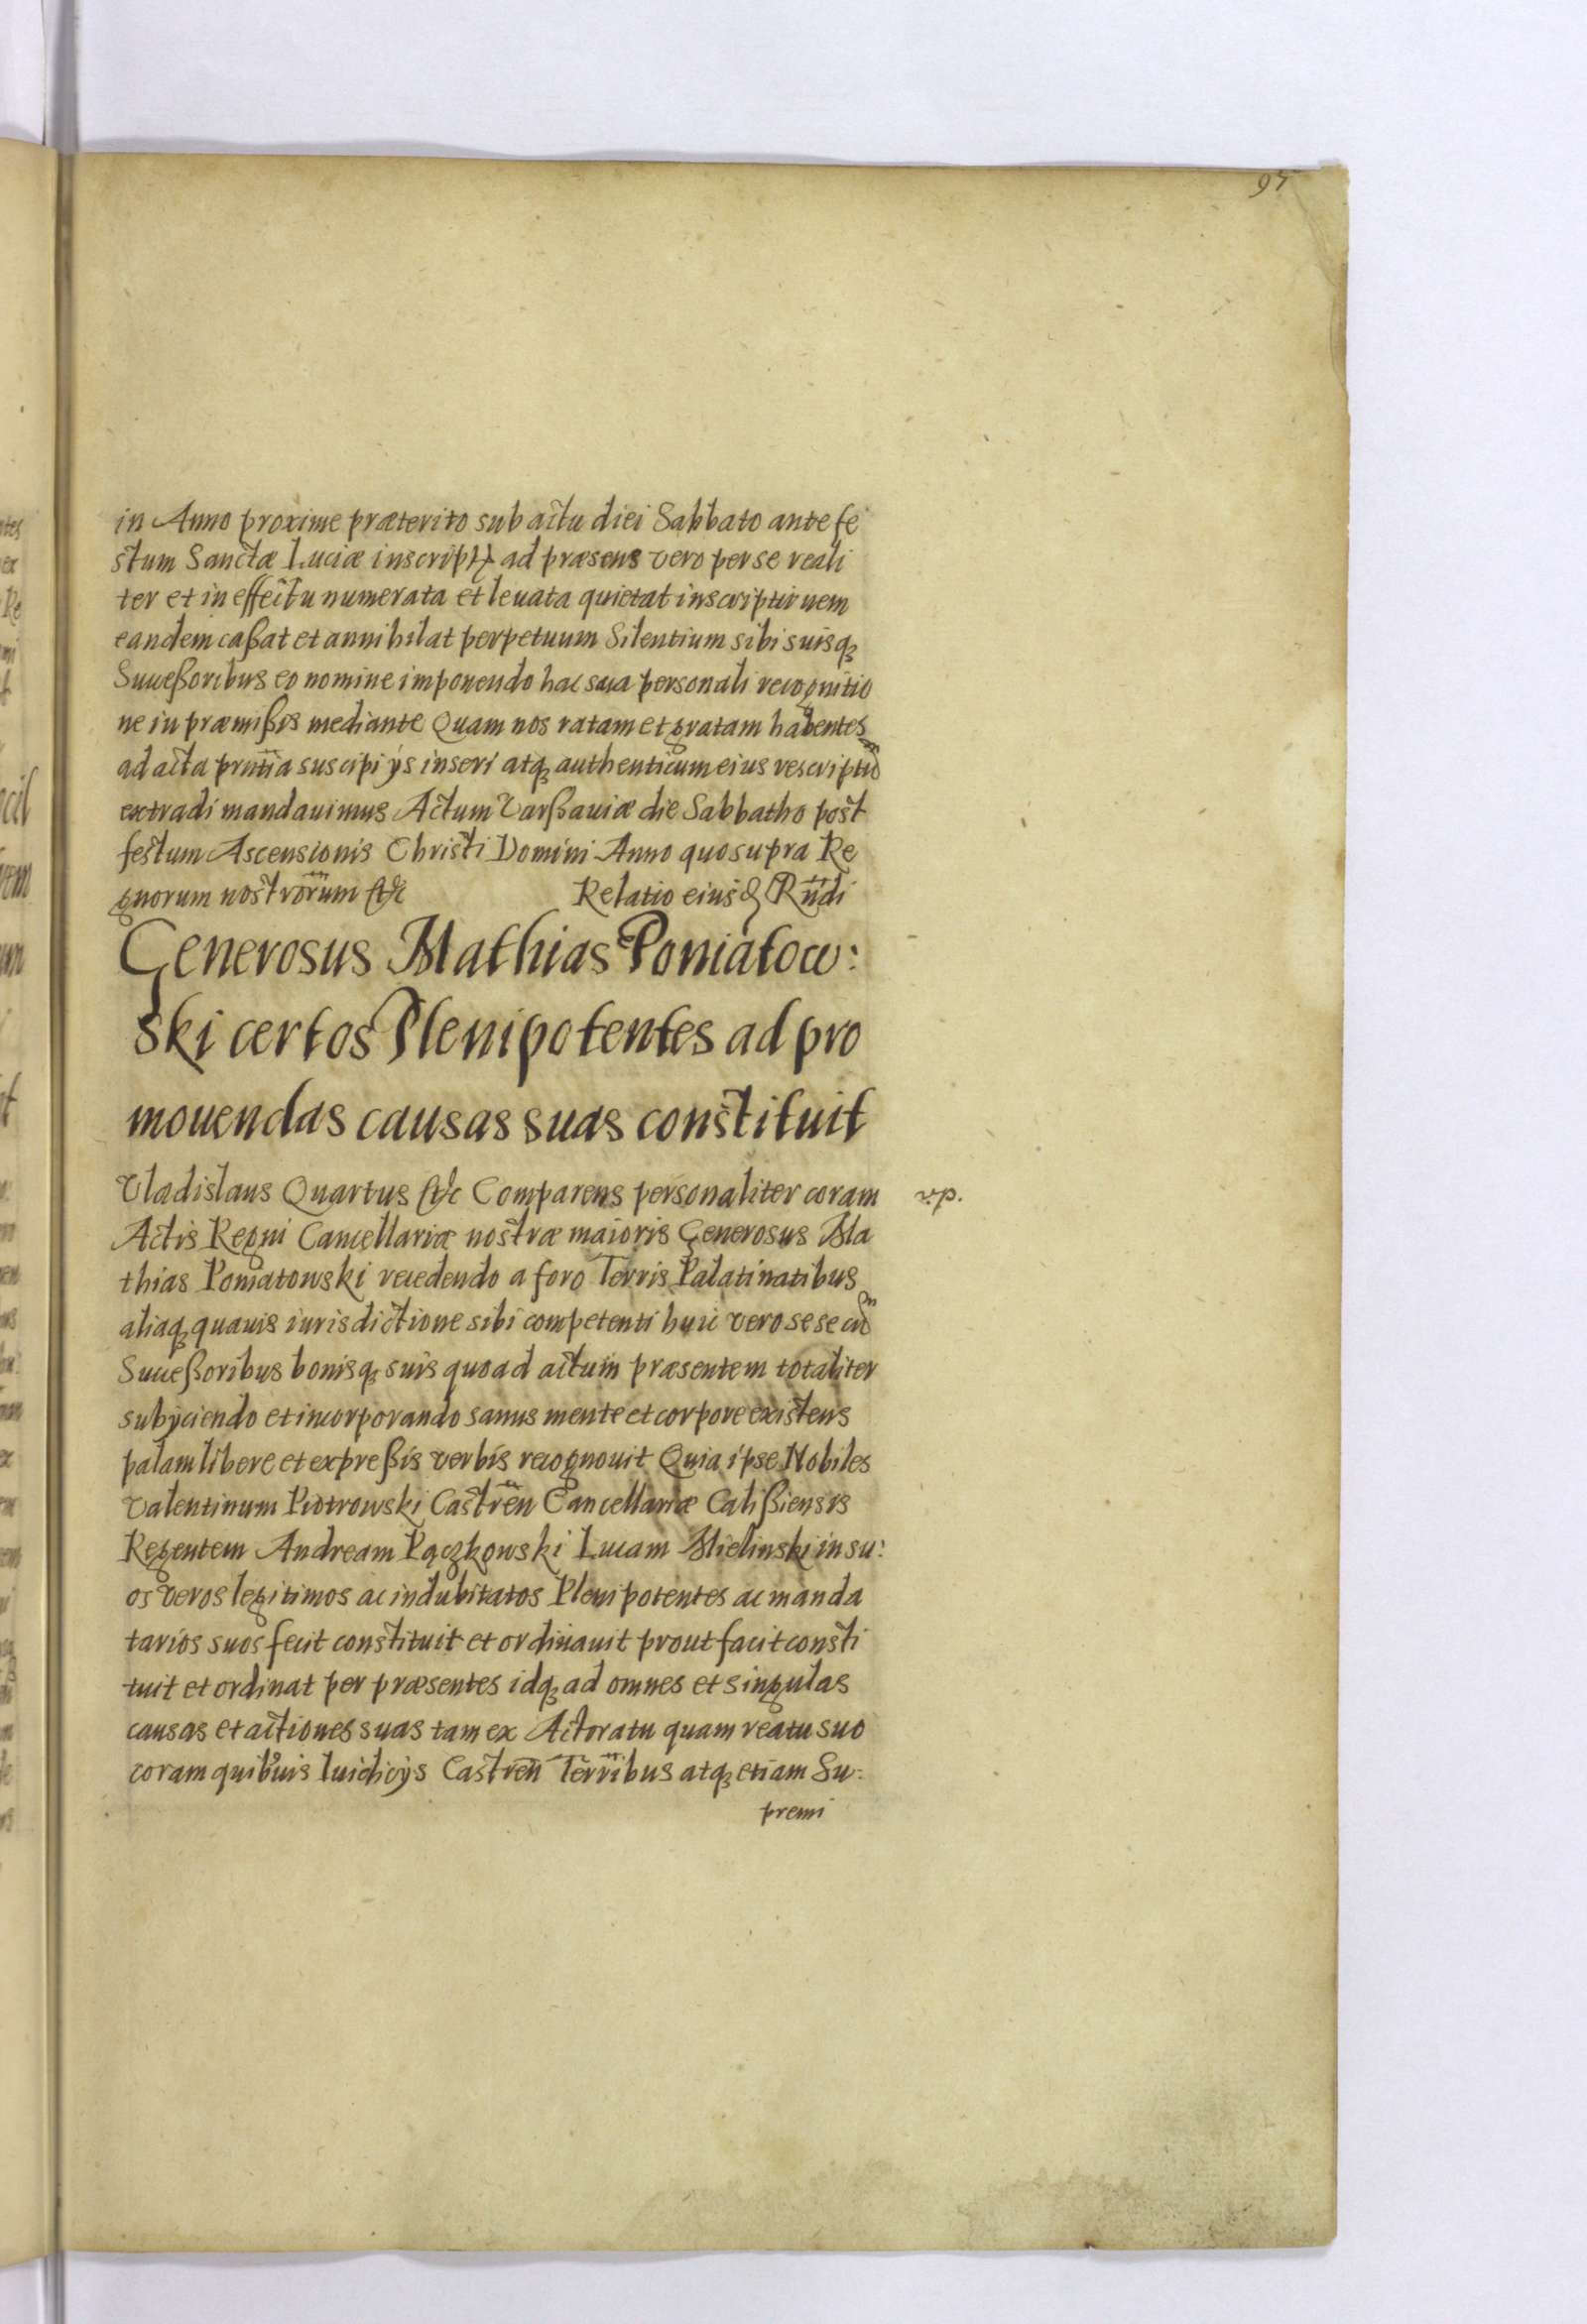 97
in Anno proxime præterito sub actu diei Sabbato ante fe
stum Sanctæ Luciæ inscript ad præsens vero per se reali
ter et in effectu numerata et leuata quietat inscriptionem
eandem caßat et annihilat perpetuum Silentium sibi suisq₃
Succeßoribus eo nomine imponendo hac sua personali recognitio
ne in præmißis mediante Quam nos ratam et gratam habentes
ad acta prñtia suscipi ÿs inseri atq₃ authenticum eius rescriptũ
extradi mandauimus Actum Varßauiæ die Sabbatho post
festum Ascensionis Christi Domini Anno quo supra Re
gnorum nostrorum etc Relatio eiusd Rñdi
Generosus Mathias Poniatow:
ski certos Plenipotentes ad pro
mouendas causas suas constituit
Vladislaus Quartus etc Comparens personaliter coram
v.p.
Actis Regni Cancellariæ nostræ maioris Generosus Ma
thias Poniatowski recedendo a foro Terris Palatinatibus
aliaq₃ quauis iurisdictione sibi competenti huic vero sese cũ
Succeßoribus bonisq₃ suis quoad actum præsentem totaliter
subÿciendo et incorporando sanus mente et corpore existens
palam libere et expreßis verbis recognouit Quia ipse Nobiles
Valentinum Piotrowski Castren̄ Cancellariæ Calißiensis
Regentem Andream Pączkowski Lucam Mielinski in su:
os veros legitimos ac indubitatos Plenipotentes ac manda
tarios suos fecit constituit et ordinauit prout facit consti
tuit et ordinat per præsentes idq₃ ad omnes et singulas
causas et actiones suas tam ex Actoratu quam reatu suo
coram quibuis Iuidicÿs Castren̄ Terr̄ibus atq₃ etiam Su:
premi